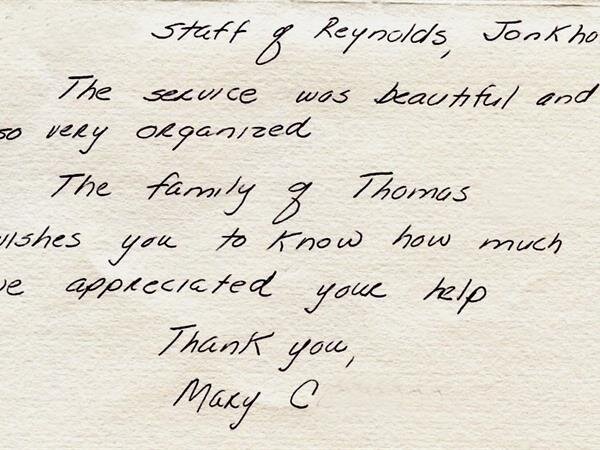 Staff of Reynolds, Jonkho
The service was beautiful and
so very organized
The family of Thomas
wishes you to know how much
we appreciated your help
Thank you,
Mary C